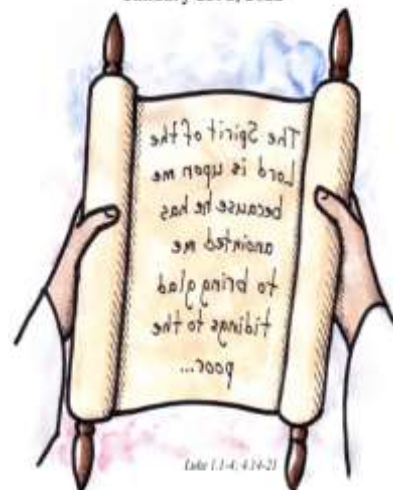 January
The Spirit of the
Lord is upon me
because he has
anointed me
to bring glad
tidings to the
poor...
Luke 1.1-4; 4.14-21